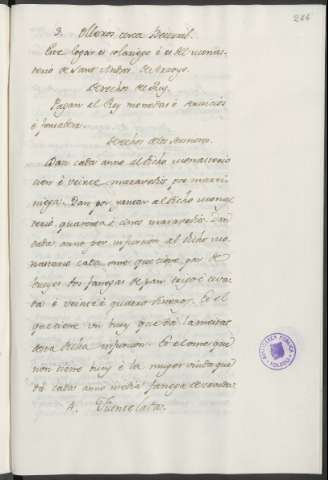 266
3. Olleros cerca Becerril.
Este logar es solariego é es del monas-
terio de Sant Andres de Arroyo.
Derechos del Rey.
Pagan al Rey monedas é servicios
é fonsadera.
Derechos de los Sennores.
Dan cada anno al dicho monasterio
cien é veinte maravedis por marti-
niega. Dan por yantar al dicho mones-
terio quarenta é cinco maravedis. Dan
cada anno por infurcion al dicho mo-
nasterio cada ome que tiene par de
bueyes dos fanegas de pan trigo é ceva-
da é veinte é quatro dineros. Et el
que tiene un buey que dá la meitad
desta dicha infurcion. Et el ome que
non tiene buey é la muger viuda que
dá cada anno media fanega de cevada.
4. Fuencalata.
BIBLIOTECA PUBLICA
TOLEDO